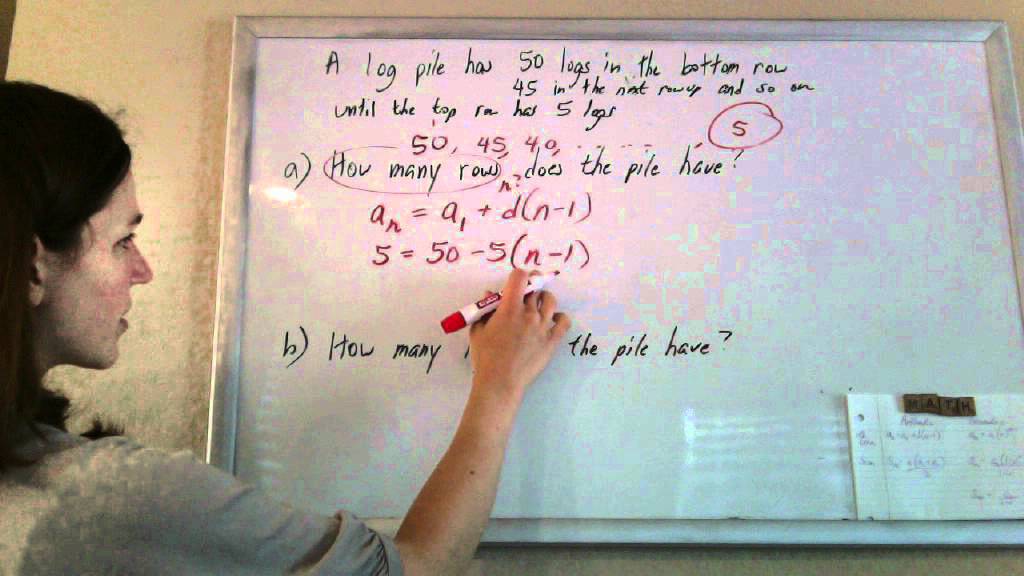 A log pile has 50 logs in the bottom row
45 in the next row up and so on
until the top row has 5 logs
50, 45, 40, ....... 5
a) How many rows does the pile have?
n?
aₙ = a₁ + d(n-1)
5 = 50 - 5(n-1)
b) How many the pile have?
MATH